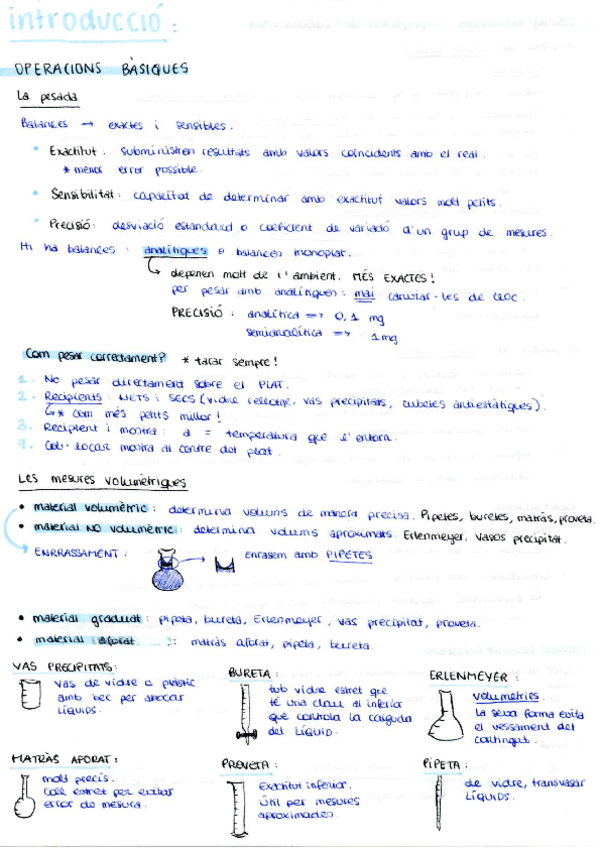 introducció:
OPERACIONS BÀSIQUES
La pesada
Balances → exactes i sensibles.
• Exactitut: subministren resultats amb valors coincidents amb el real.
* menor error possible.
• Sensibilitat: capacitat de determinar amb exactitut valors molt petits.
• Precisió: desviació estandard o coeficient de variació d'un grup de mesures.
Hi ha balances: analítiques o balances monoplat.
depenen molt de l'ambient. MÉS EXACTES!
per pesar amb analítiques: mai canviar-les de lloc.
PRECISIÓ: analítica => 0,1 mg
semianalítica => 1mg
Com pesar correctament? * tarar sempre!
1. No pesar directament sobre el PLAT.
2. Recipients: NETS i SECS (vidre rellotge, vas precipitats, cubetes antiestàtiques).
↳* com més petits millor!
3. Recipient i mostra: a = temperatura que l'entorn.
4. Col·locar mostra al centre del plat.
Les mesures volumètriques
• material volumètric: determina volums de manera precisa. Pipetes, buretes, matràs, proveta.
• material NO volumètric: determina volums aproximats. Erlenmeyer, vasos precipitat.
ENRRASSAMENT: → enrasem amb PIPETES
• material graduat: pipeta, bureta, Erlenmeyer, vas precipitat, proveta.
• material aforat: matràs aforat, pipeta, bureta.
VAS PRECIPITATS:
vas de vidre o plàstic
amb bec per abocar
LÍQUIDS.
BURETA:
tub vidre estret que
té una clau al inferior
que controla la caiguda
del LÍQUID.
ERLENMEYER:
volumetries.
La seva forma evita
el vessament del
contingut.
MATRÀS AFORAT:
molt precís.
Coll estret per evitar
error de mesura.
PROVETA:
Exactitut inferior.
Útil per mesures
aproximades.
PIPETA:
de vidre, transvasar
LÍQUIDS.